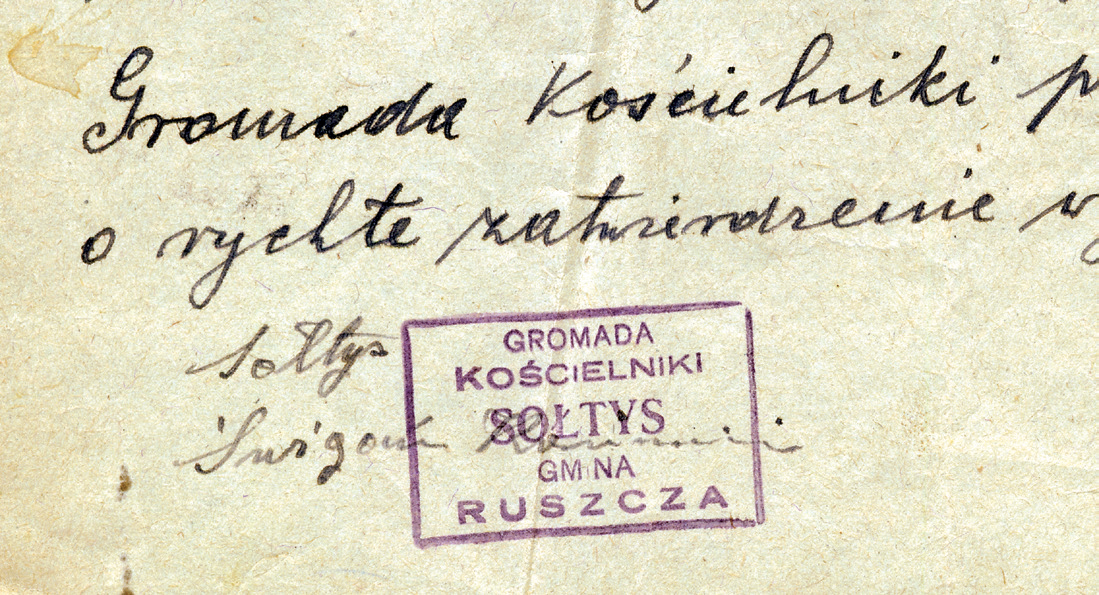 Gromada Kościelniki
o rychłe zatwierdzenie
Sołtys
GROMADA
KOŚCIELNIKI
SOŁTYS
GMINA
RUSZCZA